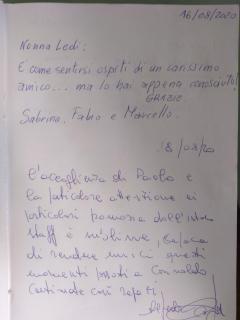 16/08/2020
Nonna Ledi:
È come sentirsi ospiti di un carissimo
amico... ma lo hai appena conosciuto!
GRAZIE
Sabrina, Fabio e Marcello.
18/08/20
L'accoglienza di Paolo e
la particolare attenzione ai
particolari promossa dall'intero
staff è sublime, capace
di rendere unici questi
momenti passati a Corinaldo
Continuate così ragazzi